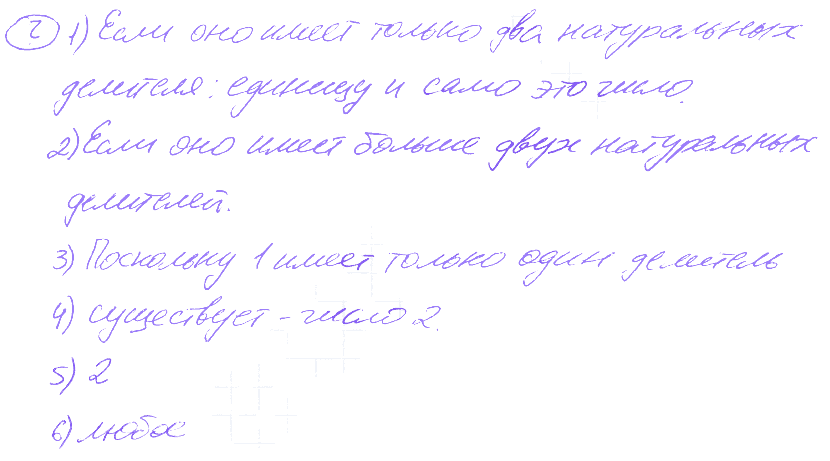 ? 1) Если оно имеет только два натуральных
делителя: единицу и само это число.
2) Если оно имеет больше двух натуральных
делителей.
3) Поскольку 1 имеет только один делитель
4) существует - число 2.
5) 2
6) любое